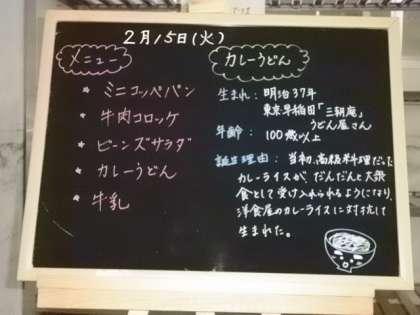 2月15日(火)
メニュー
* ミニコッペパン
* 牛肉コロッケ
* ビーンズサラダ
* カレーうどん
* 牛乳
カレーうどん
生まれ：明治37年
東京早稲田「三朝庵」
うどん屋さん
年齢：100歳以上
誕生理由：当初、高級料理だった
カレーライスが、だんだんと大衆
食として受け入れられるようになり、
洋食屋のカレーライスに対抗して
生まれた。